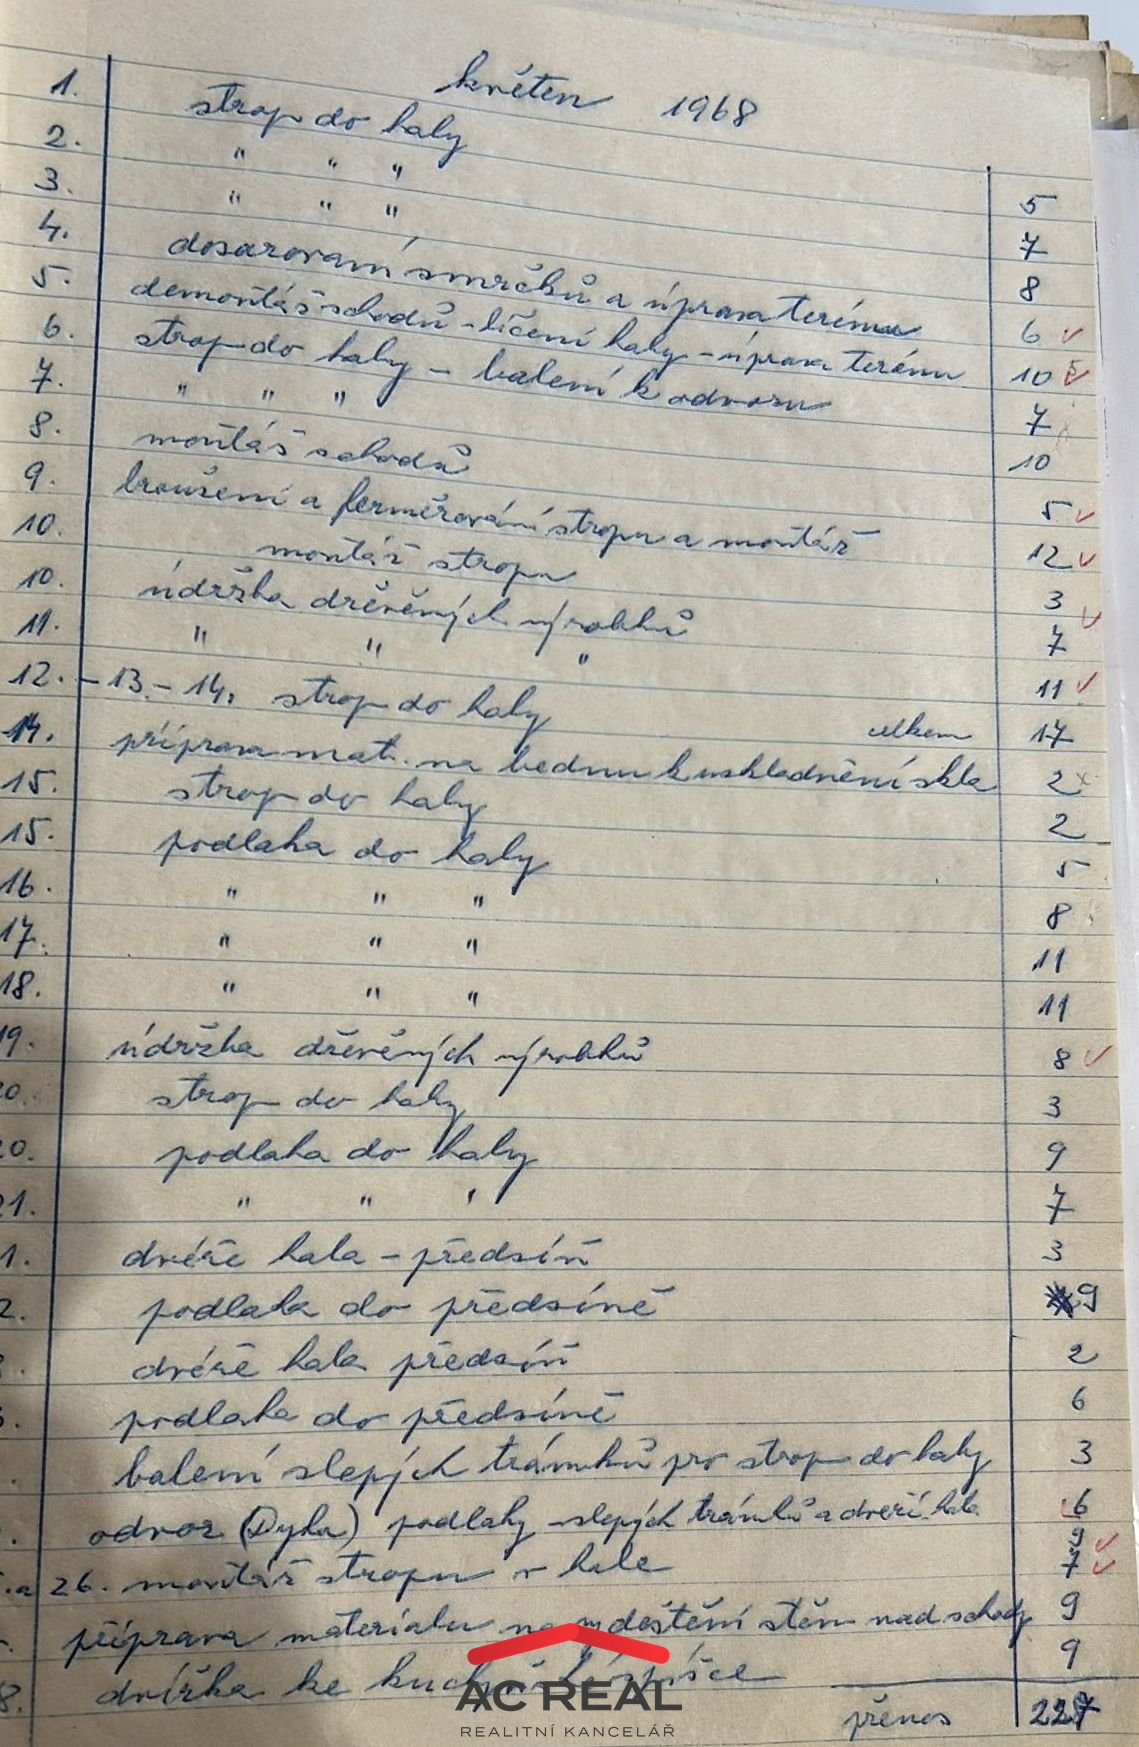 květen 1968
1. strop do haly 5
2. " " " 7
3. " " " 8
4. smrčků a úprava terénu 6 ✓
5. demontáž schodů - líčení haly - úprava terénu 10 ✓
6. strop do haly - balení k odvozu 7
7. " " " 10
8. montáž schodů 5 ✓
9. broušení a ferměrování stropu a montáž 12 ✓
10. montáž stropu 3 ✓
10. údržba dřěvěných výrobků 7
11. " " " 11 ✓
12. - 13. - 14. strop do haly celkem 17
14. příprava mat. na bednu k uskladnění skla 2
15. strop do haly 2
15. podlaha do haly 5
16. " " " 8
17. " " " 11
18. " " " 11
19. údržba dřěvěných výrobků 8 ✓
20. strop do haly 3
20. podlaha do haly 9
21. " " " 7
1. dvéře hala - předsíň 3
2. podlaha do předsíně 9
dvéře hala předsíň 2
podlaha do předsíně 6
balení slepých trámků pro strop do haly 3
odvoz (Dyha) podlahy - slepých trámků a dveří hala 6
9 ✓
.a 26. montáž stropu v hale 7 ✓
příprava materialu na deštění stěn nad schody 9
8. dvířka ke 9
přenos 227
AC REAL
REALITNÍ KANCELÁŘ